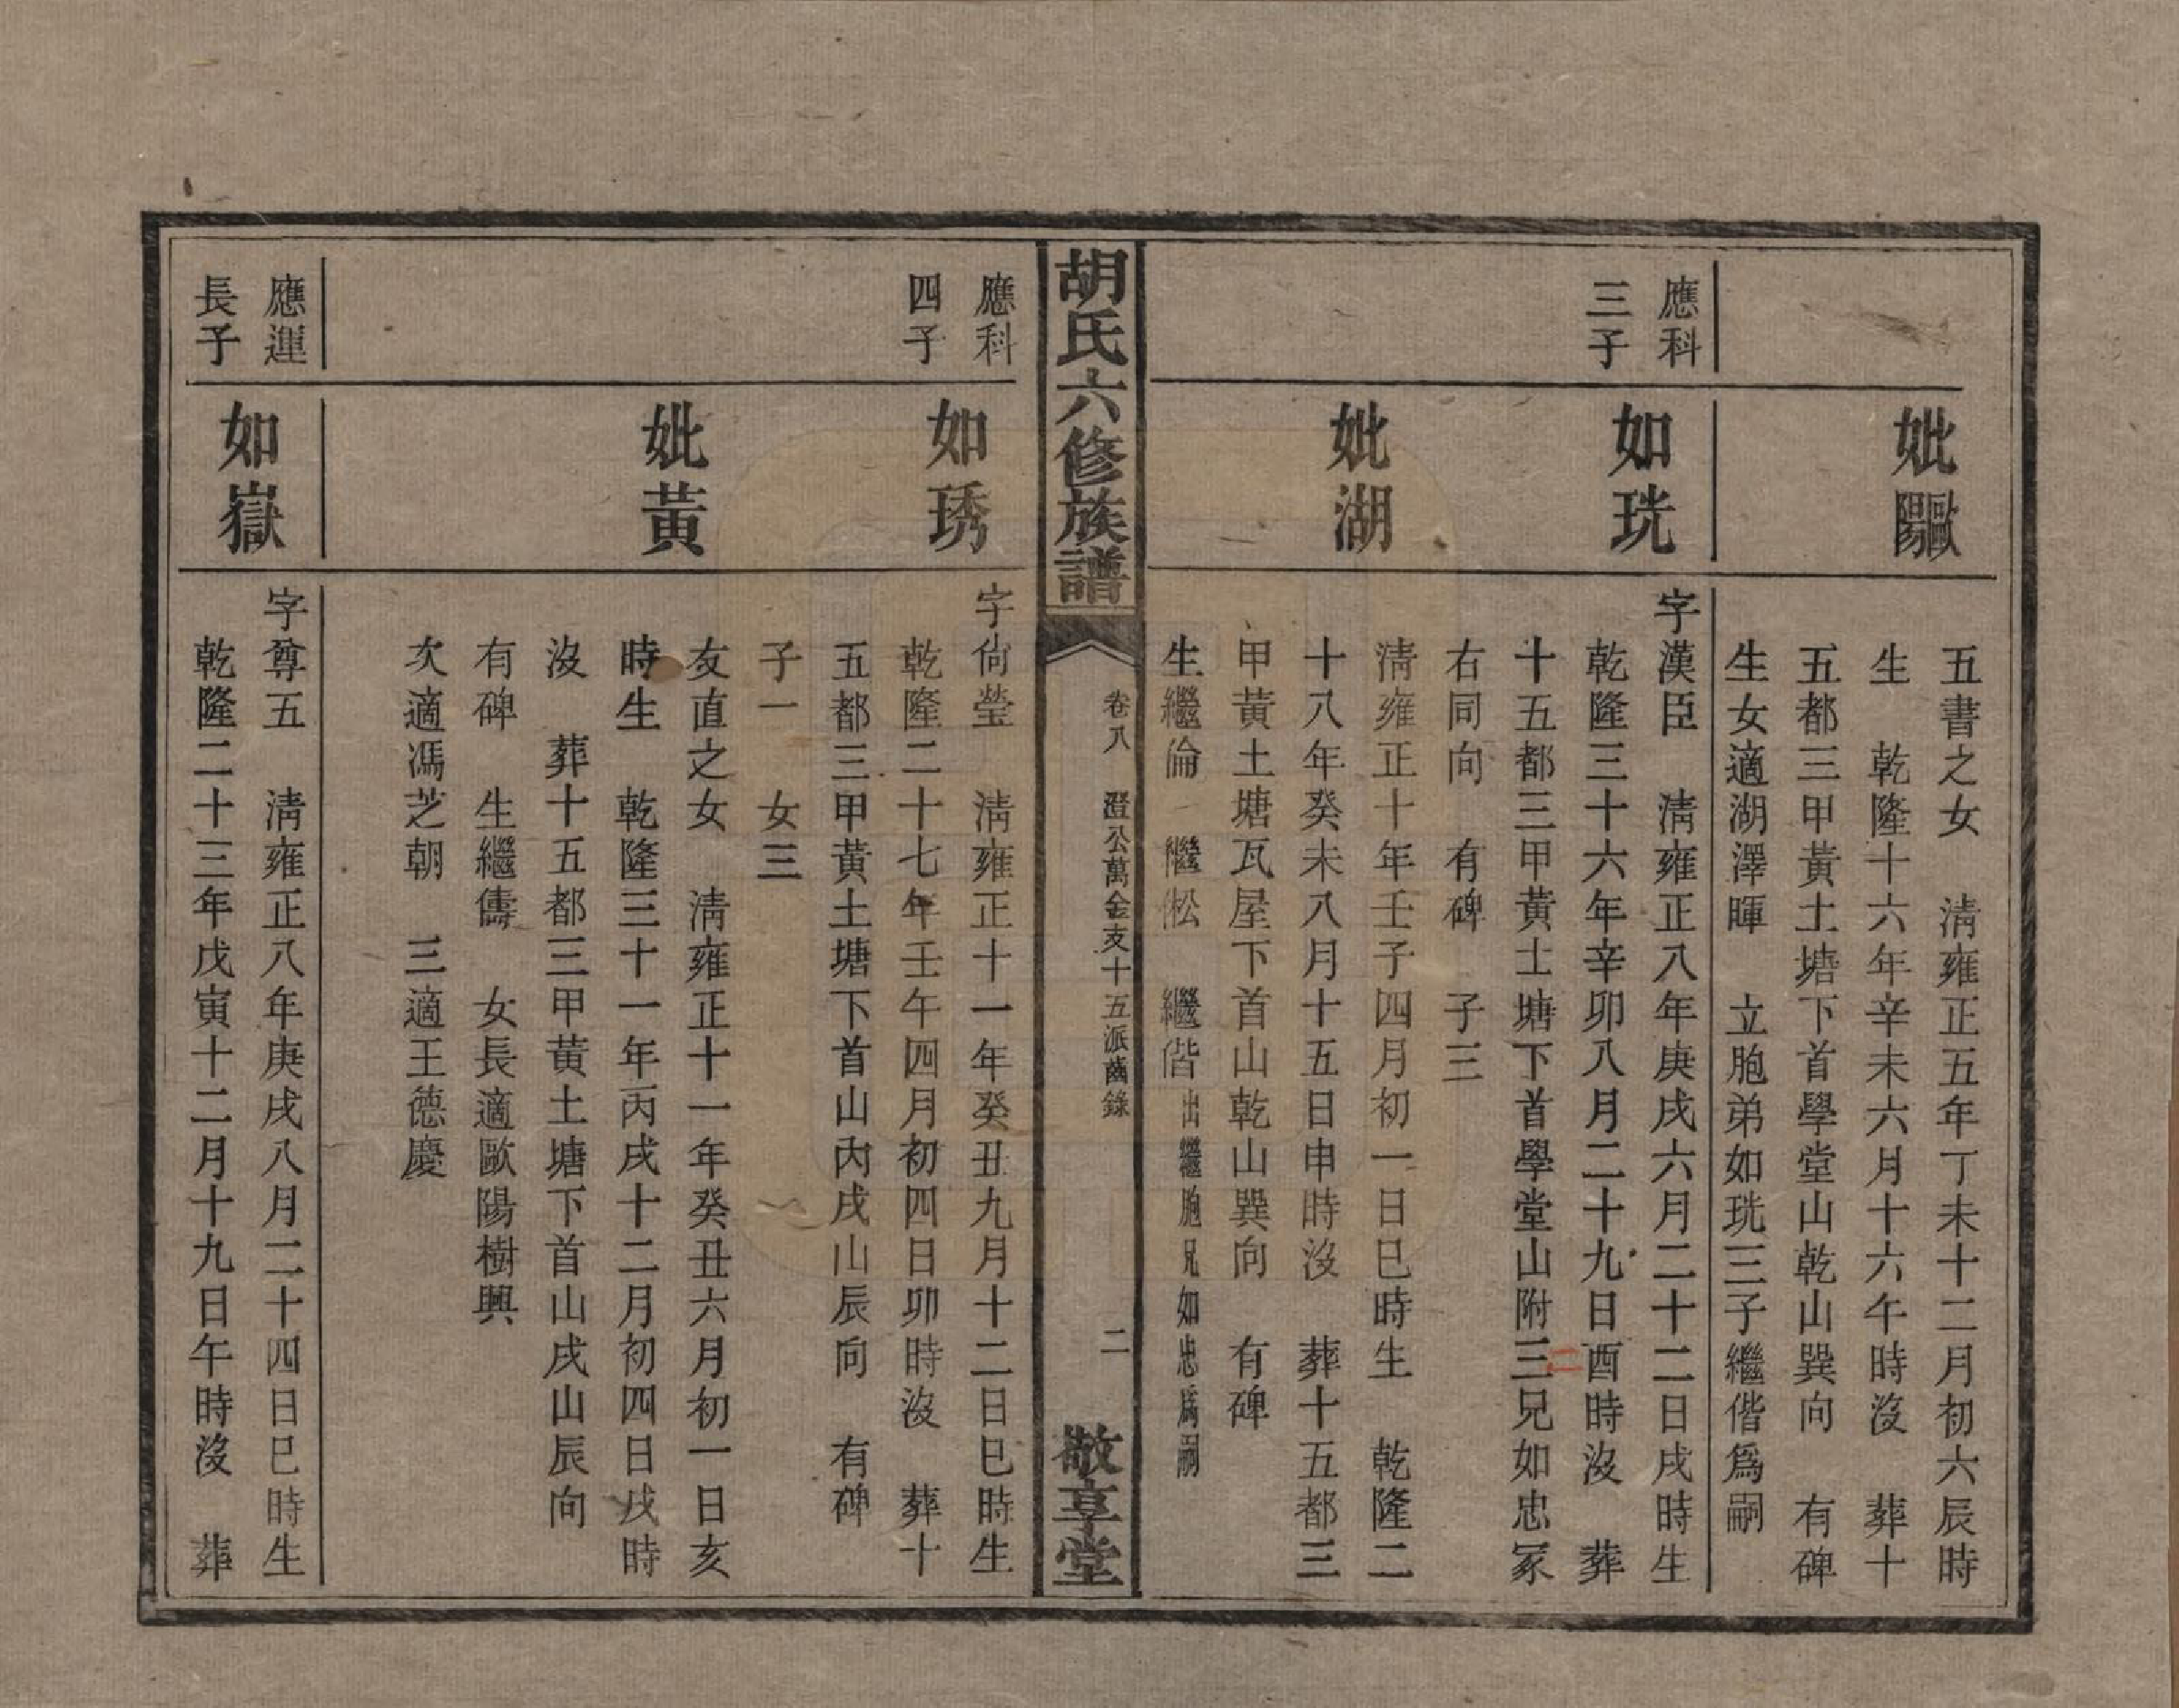 妣歐陽
五書之女　清雍正五年丁未十二月初六辰時
生　乾隆十六年辛未六月十六午時沒　葬十
五都三甲黃土塘下首學堂山乾山巽向　有碑
生女適湖澤暉　立胞弟如珖三子繼偕爲嗣
應科
三子
如珖
字漢臣　清雍正八年庚戌六月二十二日戌時生
乾隆三十六年辛卯八月二十九日酉時沒　葬
十五都三甲黃土塘下首學堂山附三兄如忠冢
二
右同向　有碑　子三
妣湖
清雍正十年壬子四月初一日巳時生　乾隆二
十八年癸未八月十五日申時沒　葬十五都三
甲黃土塘瓦屋下首山乾山巽向　有碑
生繼倫　繼倯　繼偕出繼胞兄如忠爲嗣
胡氏六修族譜
卷八　澄公萬金支十五派齒錄
二
敬享堂
應科
四子
如琇
字尙瑩　清雍正十一年癸丑九月十二日巳時生
乾隆二十七年壬午四月初四日卯時沒　葬十
五都三甲黃土塘下首山內戌山辰向　有碑
子一　女三
妣黃
友直之女　清雍正十一年癸丑六月初一日亥
時生　乾隆三十一年丙戌十二月初四日戌時
沒　葬十五都三甲黃土塘下首山戌山辰向
有碑　生繼儔　女長適歐陽樹興
次適馮芝朝　三適王德慶
應運
長子
如嶽
字尊五　清雍正八年庚戌八月二十四日巳時生
乾隆二十三年戊寅十二月十九日午時沒　葬